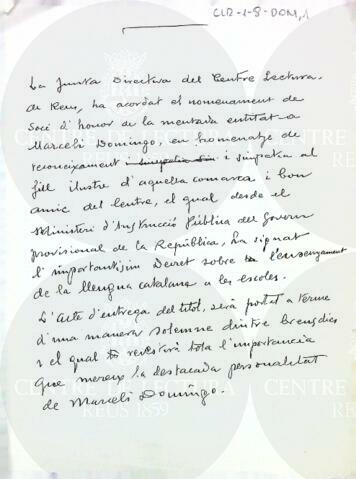 CLR-1-8-DOM,1
La Junta Directiva del Centre Lectura.
de Reus, ha acordat el nomenament de
Soci d'honor de la mentada entitat a
Marcelí Domingo, en homenatge de
reconeixement i simpatia al
fill ilustre d'aquella comarca i bon
amic del Centre, el qual desde el
Ministeri d'Instrucció Pública del Govern
provisional de la República, ha signat
l'importantíssim Decret sobre l'ensenyament
de la llengua catalana a les escoles.
L'Acte d'entrega del títol, serà portat a terme
d'una manera solemne dintre breus dies
i el qual revestirà tota l'importancia
que mereix la destacada personalitat
de Marcelí Domingo.
CENTRE DE LECTURA
REUS 1859